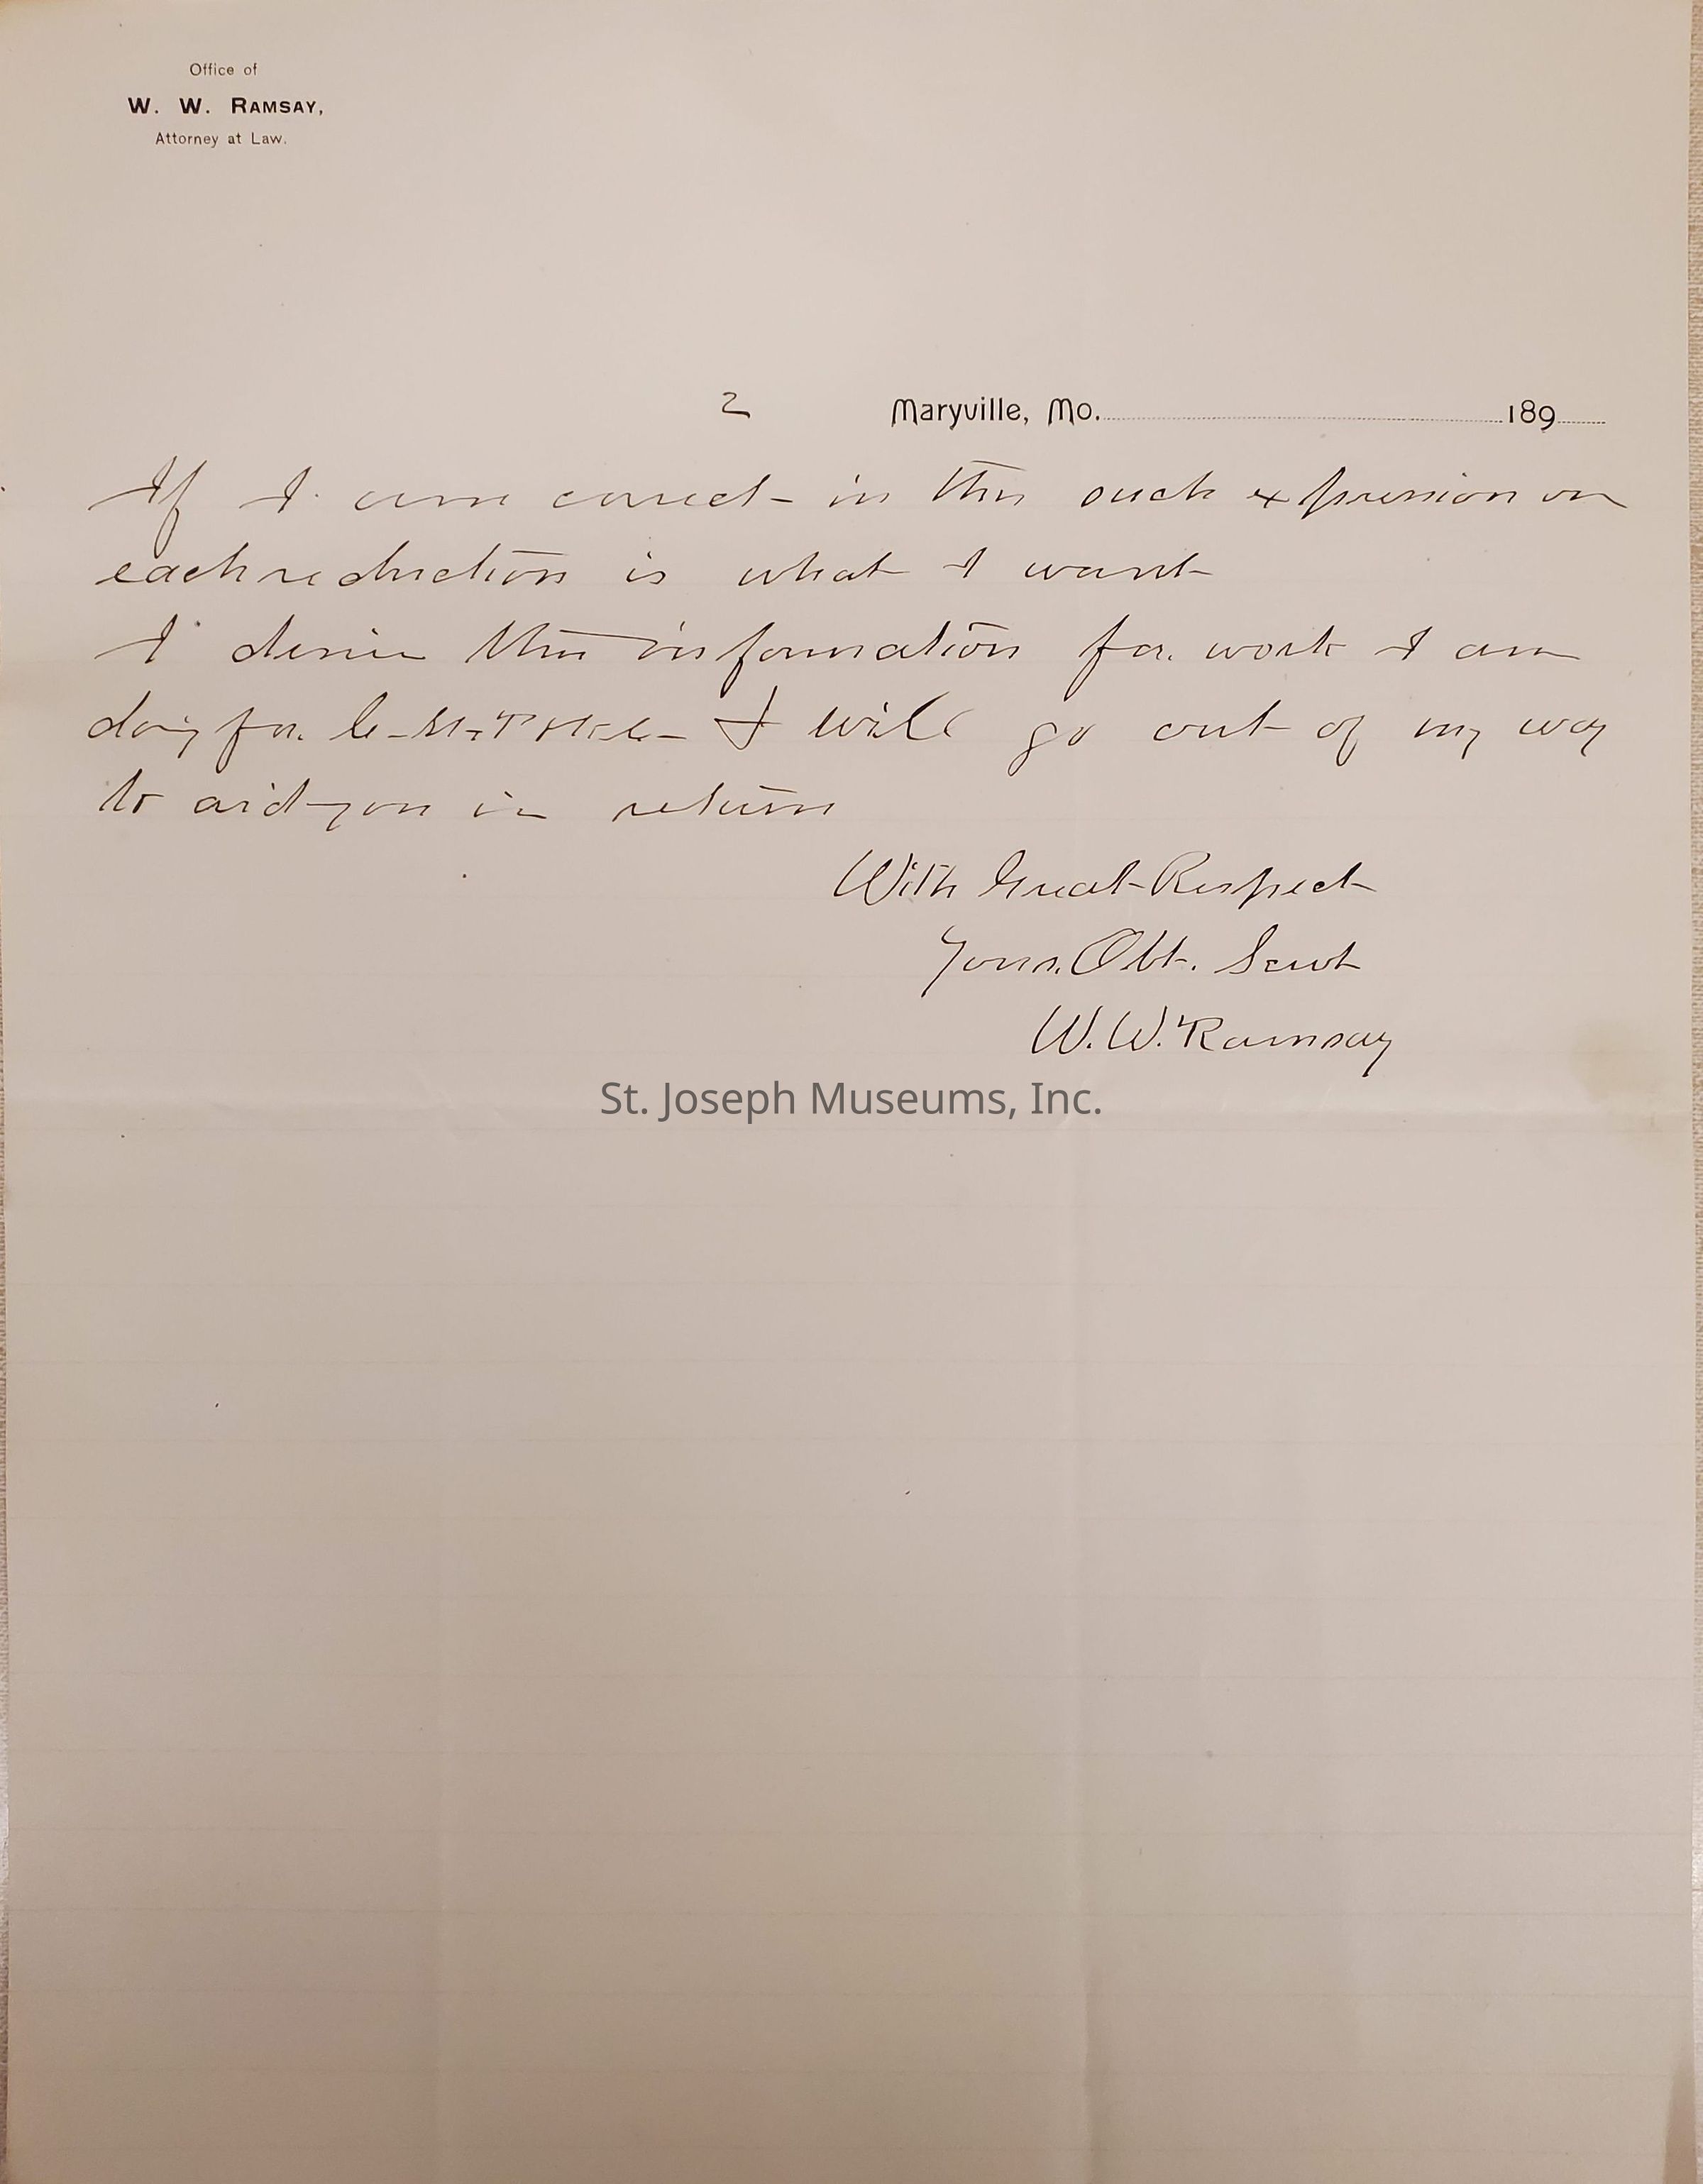 Office of
W. W. RAMSAY,
Attorney at Law.
2 Maryville, Mo. 189
If I am correct in this such expression on
each reduction is what I want
I desire this information for work I am
doing for I will go out of my way
to aid you in return
With Great Respect
Yours. Obt. Servt
W. W. Ramsay
St. Joseph Museums, Inc.